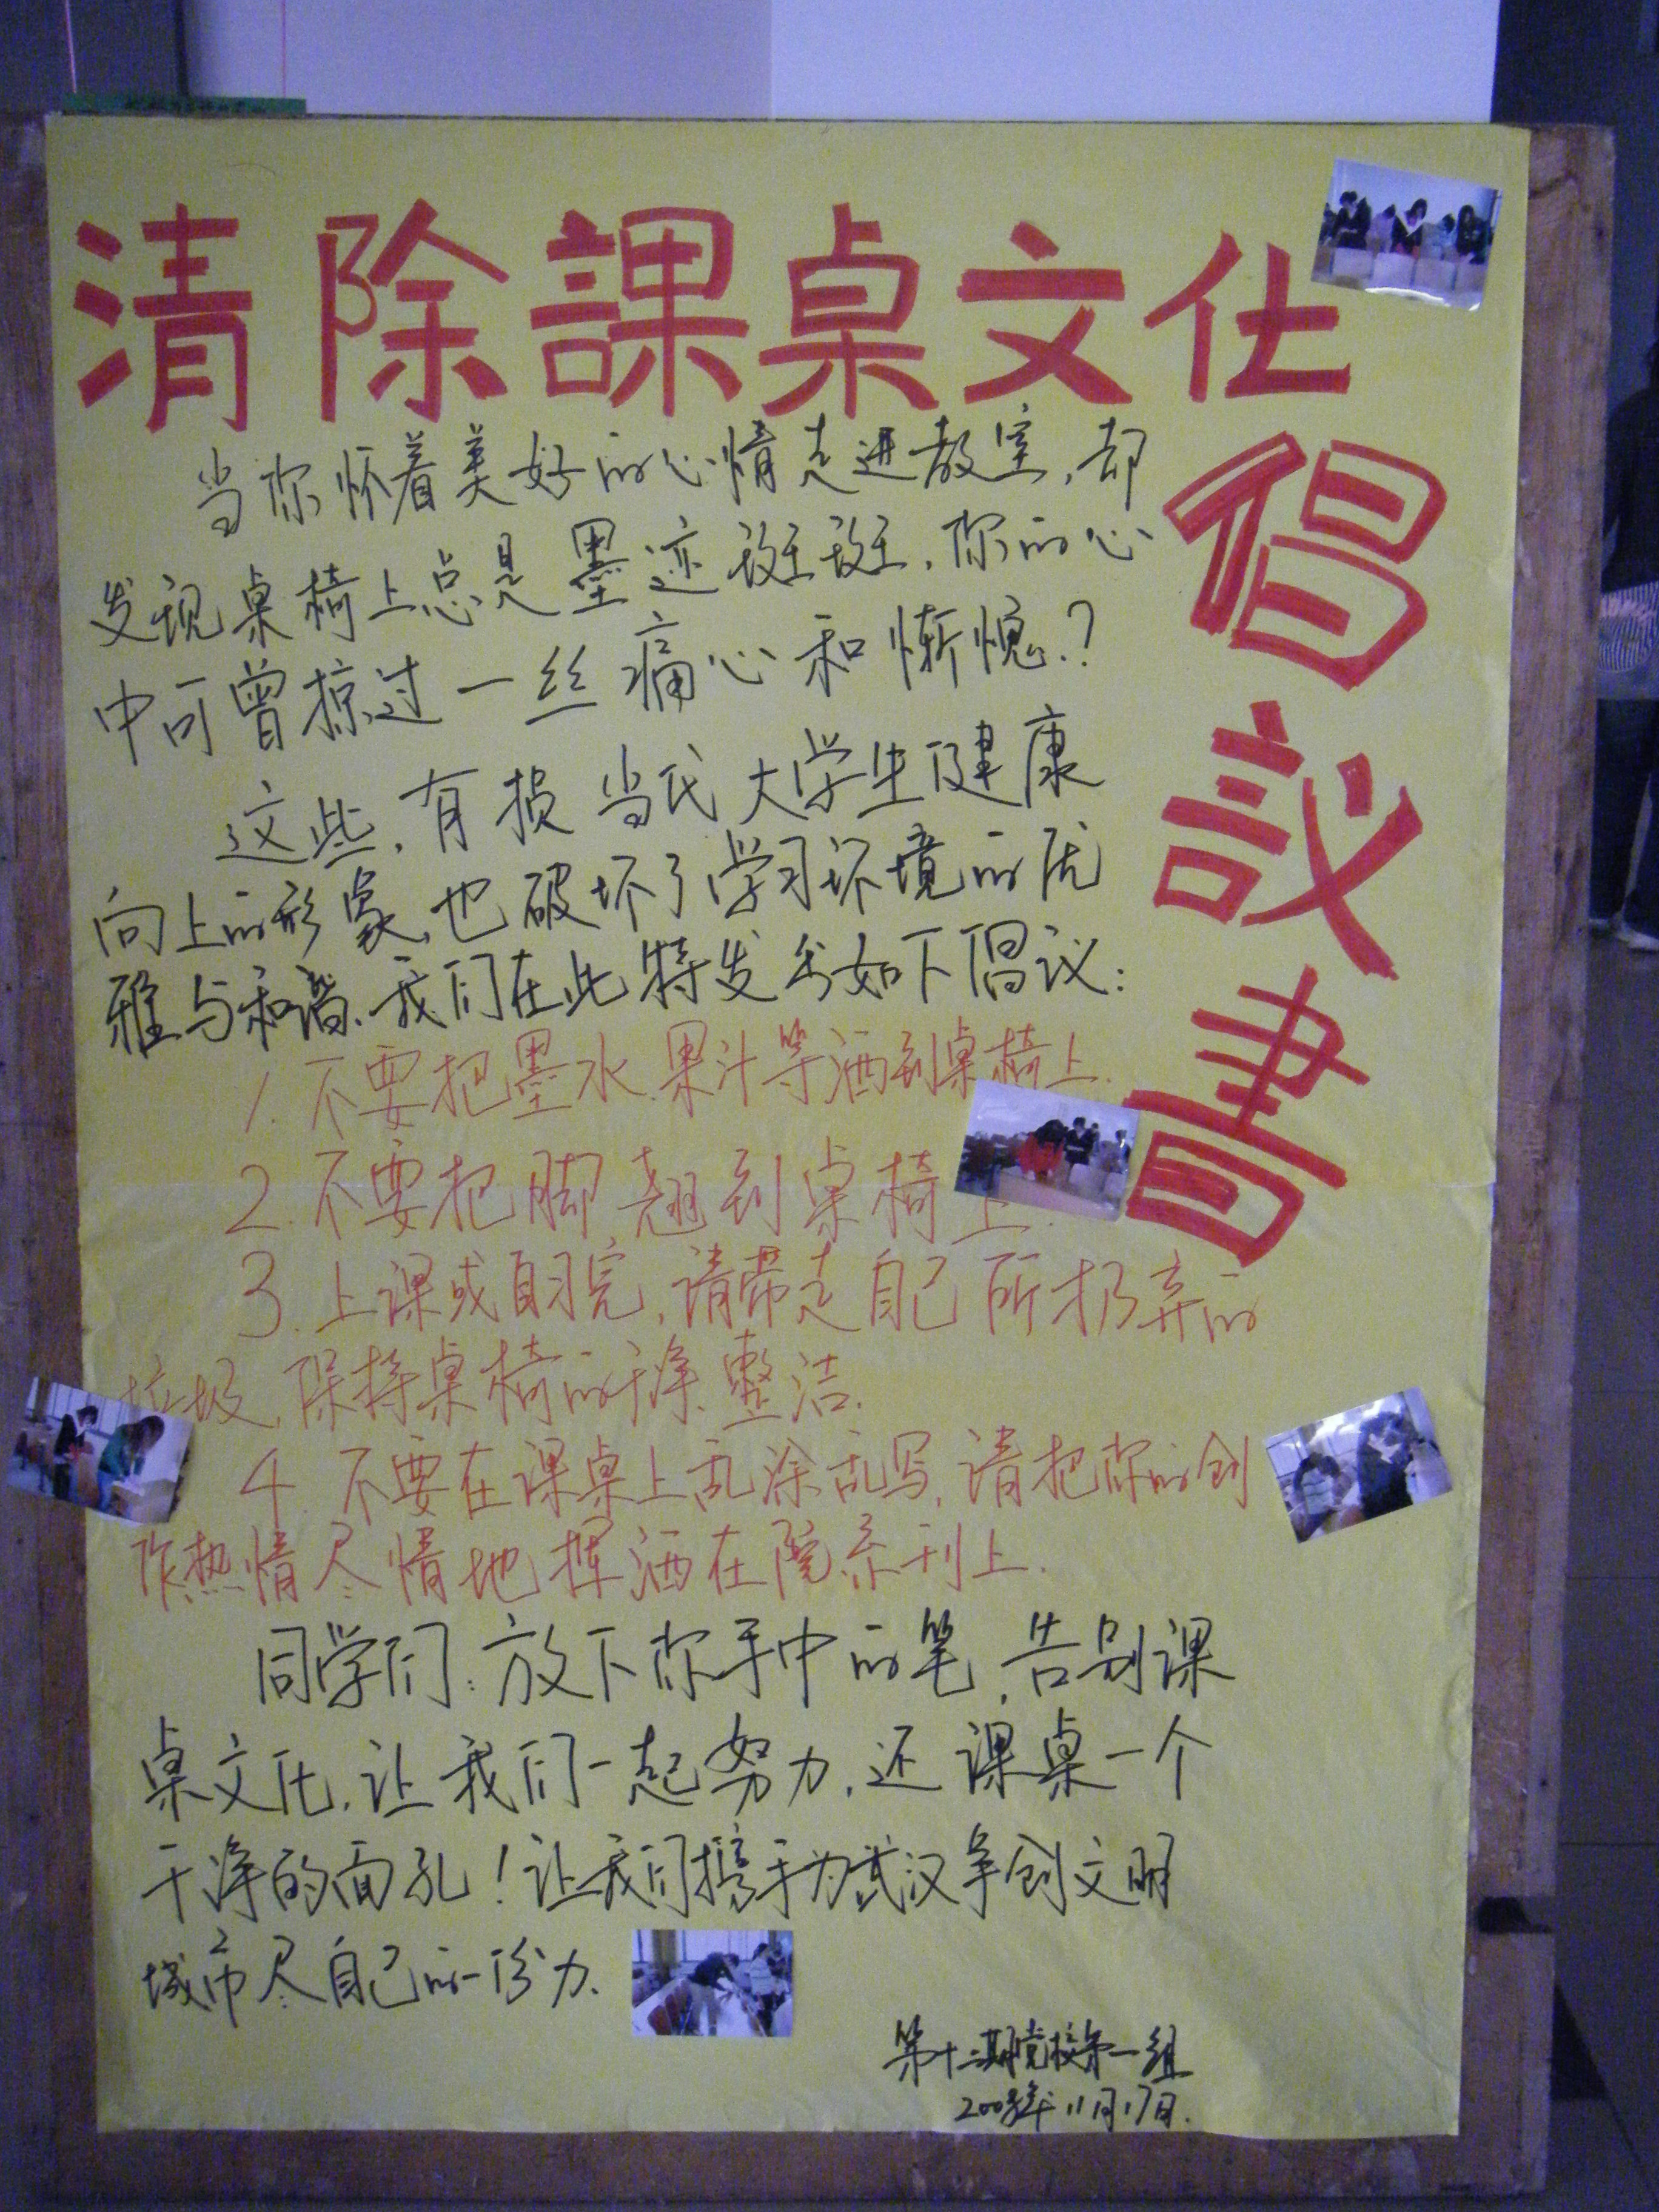 清除課桌文化
倡議書
当你怀着美好的心情走进教室,却
发现桌椅上总是墨迹斑斑,你的心
中可曾掠过一丝痛心和惭愧?
这些,有损当代大学生健康
向上的形象,也破坏了学习环境的优
雅与和谐.我们在此特发出如下倡议:
1.不要把墨水.果汁等洒到桌椅上.
2.不要把脚翘到桌椅上.
3.上课或自习完,请带走自己所扔弃的
垃圾,保持桌椅的干净.整洁.
4.不要在课桌上乱涂乱写,请把你的创
作热情尽情地挥洒在院系刊上.
同学们:放下你手中的笔,告别课
桌文化,让我们一起努力,还课桌一个
干净的面孔!让我们携手为武汉争创文明
城市尽自己的一份力.
第十二期党校第一组
2008年11月17日.